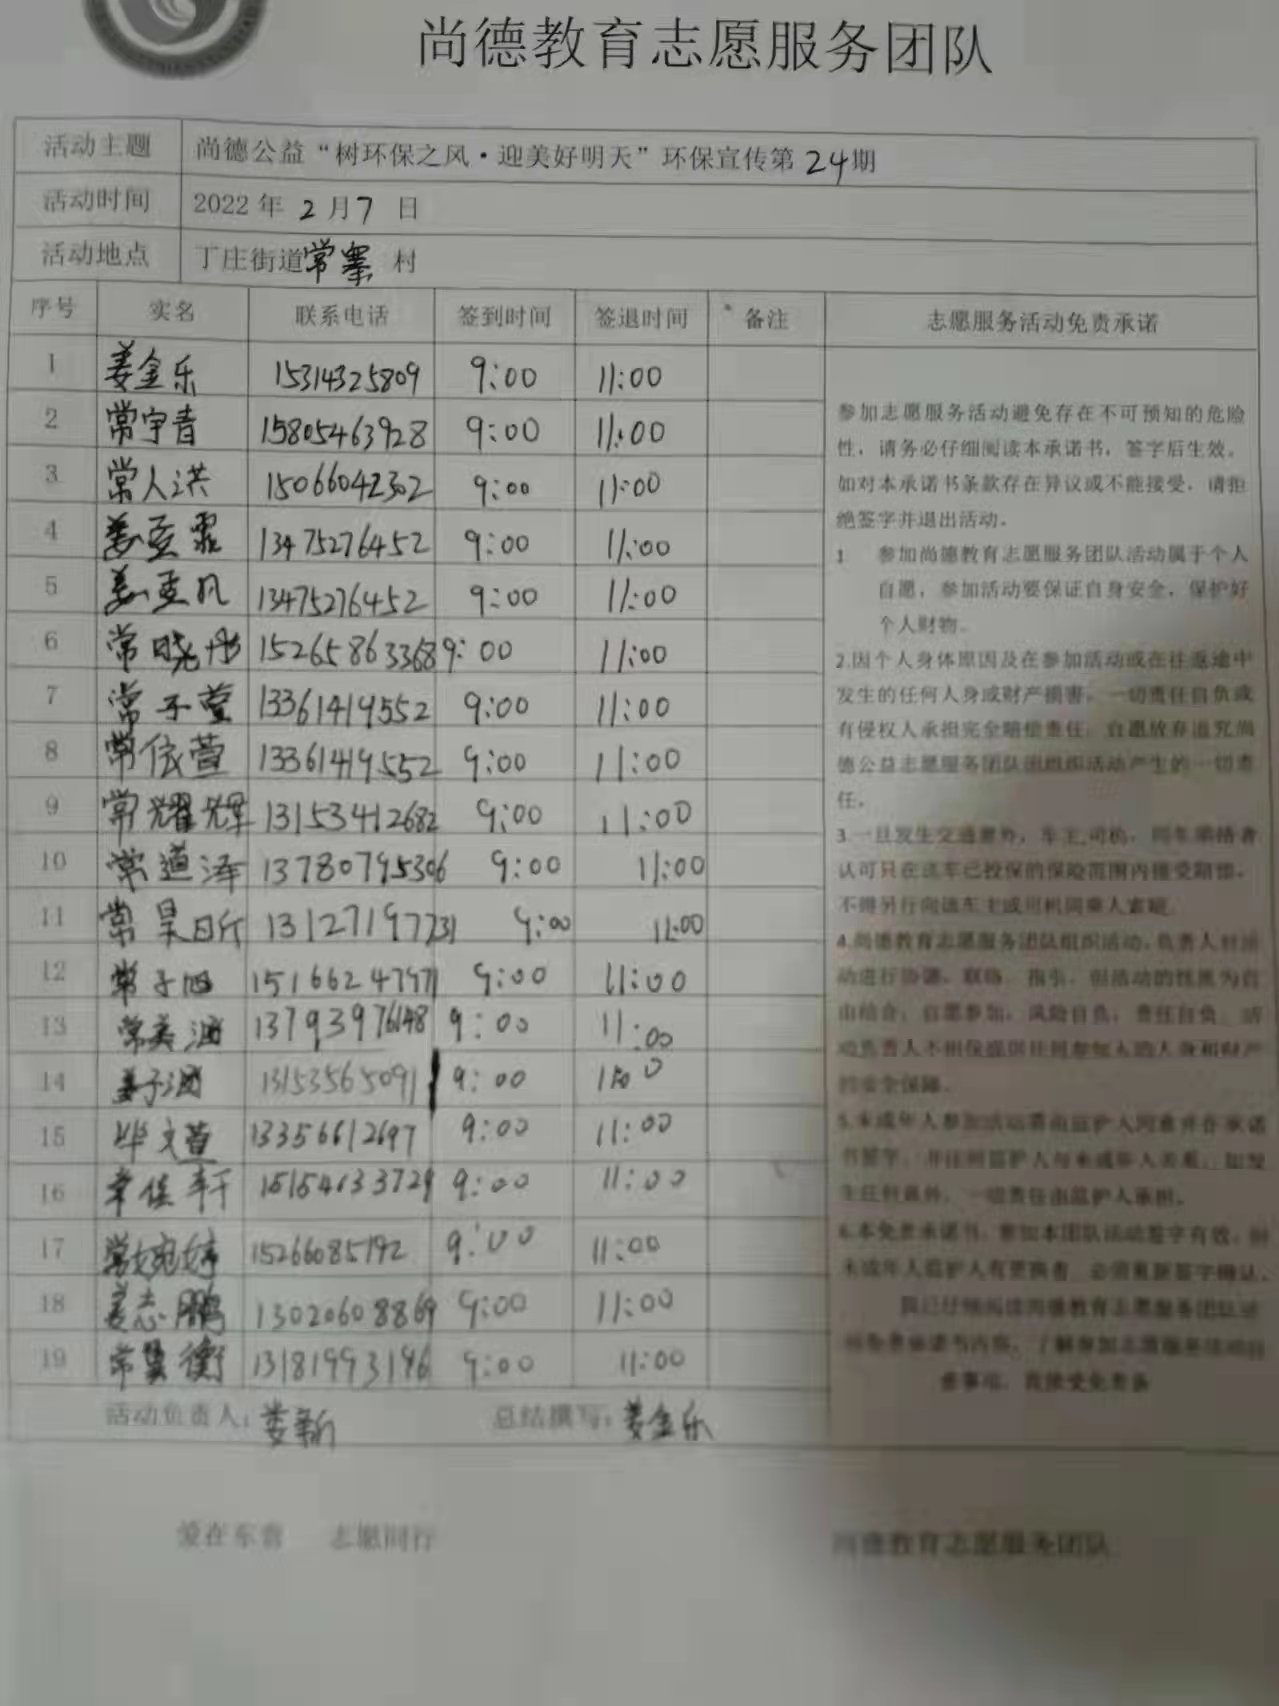 尚德教育志愿服务团队
活动主题 尚德公益“树环保之风·迎美好明天”环保宣传第24期
活动时间 2022年 2月7日
活动地点 丁庄街道常寨 村
序号 实名 联系电话 签到时间 签退时间 备注 志愿服务活动免责承诺
1 姜金乐 15314325809 9:00 11:00
2 常宇青 15805463928 9:00 11:00
3 常人洪 15066042302 9:00 11:00
4 姜亚霏 13475276452 9:00 11:00
5 姜亚凡 13475276452 9:00 11:00
6 常晓彤 15265863368 9:00 11:00
7 常子萱 13361419552 9:00 11:00
8 常依萱 13361419552 9:00 11:00
9 常耀辉 13153412682 9:00 11:00
10 常道泽 13780795306 9:00 11:00
11 常昊昕 13127197731 9:00 11:00
12 常子 15166247971 9:00 11:00
13 常美涵 13793976148 9:00 11:00
14 姜子涵 13153565091 9:00 11:00
15 毕文萱 13356612697 9:00 11:00
16 佳轩 15154633729 9:00 11:00
17 常婉婷 15266085792 9:00 11:00
18 姜志鹏 13020608869 9:00 11:00
19 常翼衡 13181993196 9:00 11:00
活动负责人：姜新 总结撰写：姜金乐
参加志愿服务活动避免存在不可预知的危险
性，请务必仔细阅读本承诺书，签字后生效。
如对本承诺书条款存在异议或不能接受，请拒
绝签字并退出活动。
1 参加尚德教育志愿服务团队活动属于个人
自愿，参加活动要保证自身安全，保护好
个人财物。
2.因个人身体原因及在参加活动或在往返途中
发生的任何人身或财产损害，一切责任自负或
有侵权人承担完全赔偿责任，自愿放弃追究尚
德公益志愿服务团队组织活动产生的一切责
任。
3.一旦发生交通意外，车主,司机，同车乘搭者
认可只在该车已投保的保险范围内接受赔偿，
不得另行向该车主或司机同乘人索赔。
4.尚德教育志愿服务团队组织活动，负责人对活
动进行协调、联络、指引，但活动的性质为自
由结合，自愿参加，风险自负，责任自负，活
动负责人不担保提供任何参加人的人身和财产
的安全保障。
5.未成年人参加活动需由监护人同意并在承诺
书签字，并注明监护人与未成年人关系，如发
生任何意外，一切责任由监护人承担。
6.本免责承诺书，参加本团队活动签字有效，但
未成年人监护人有更换者，必须重新签字确认。
我已仔细阅读尚德教育志愿服务团队活
动免责承诺书内容，了解参加志愿服务活动
意事项，我接受免责条
爱在东营 志愿同行
尚德教育志愿服务团队